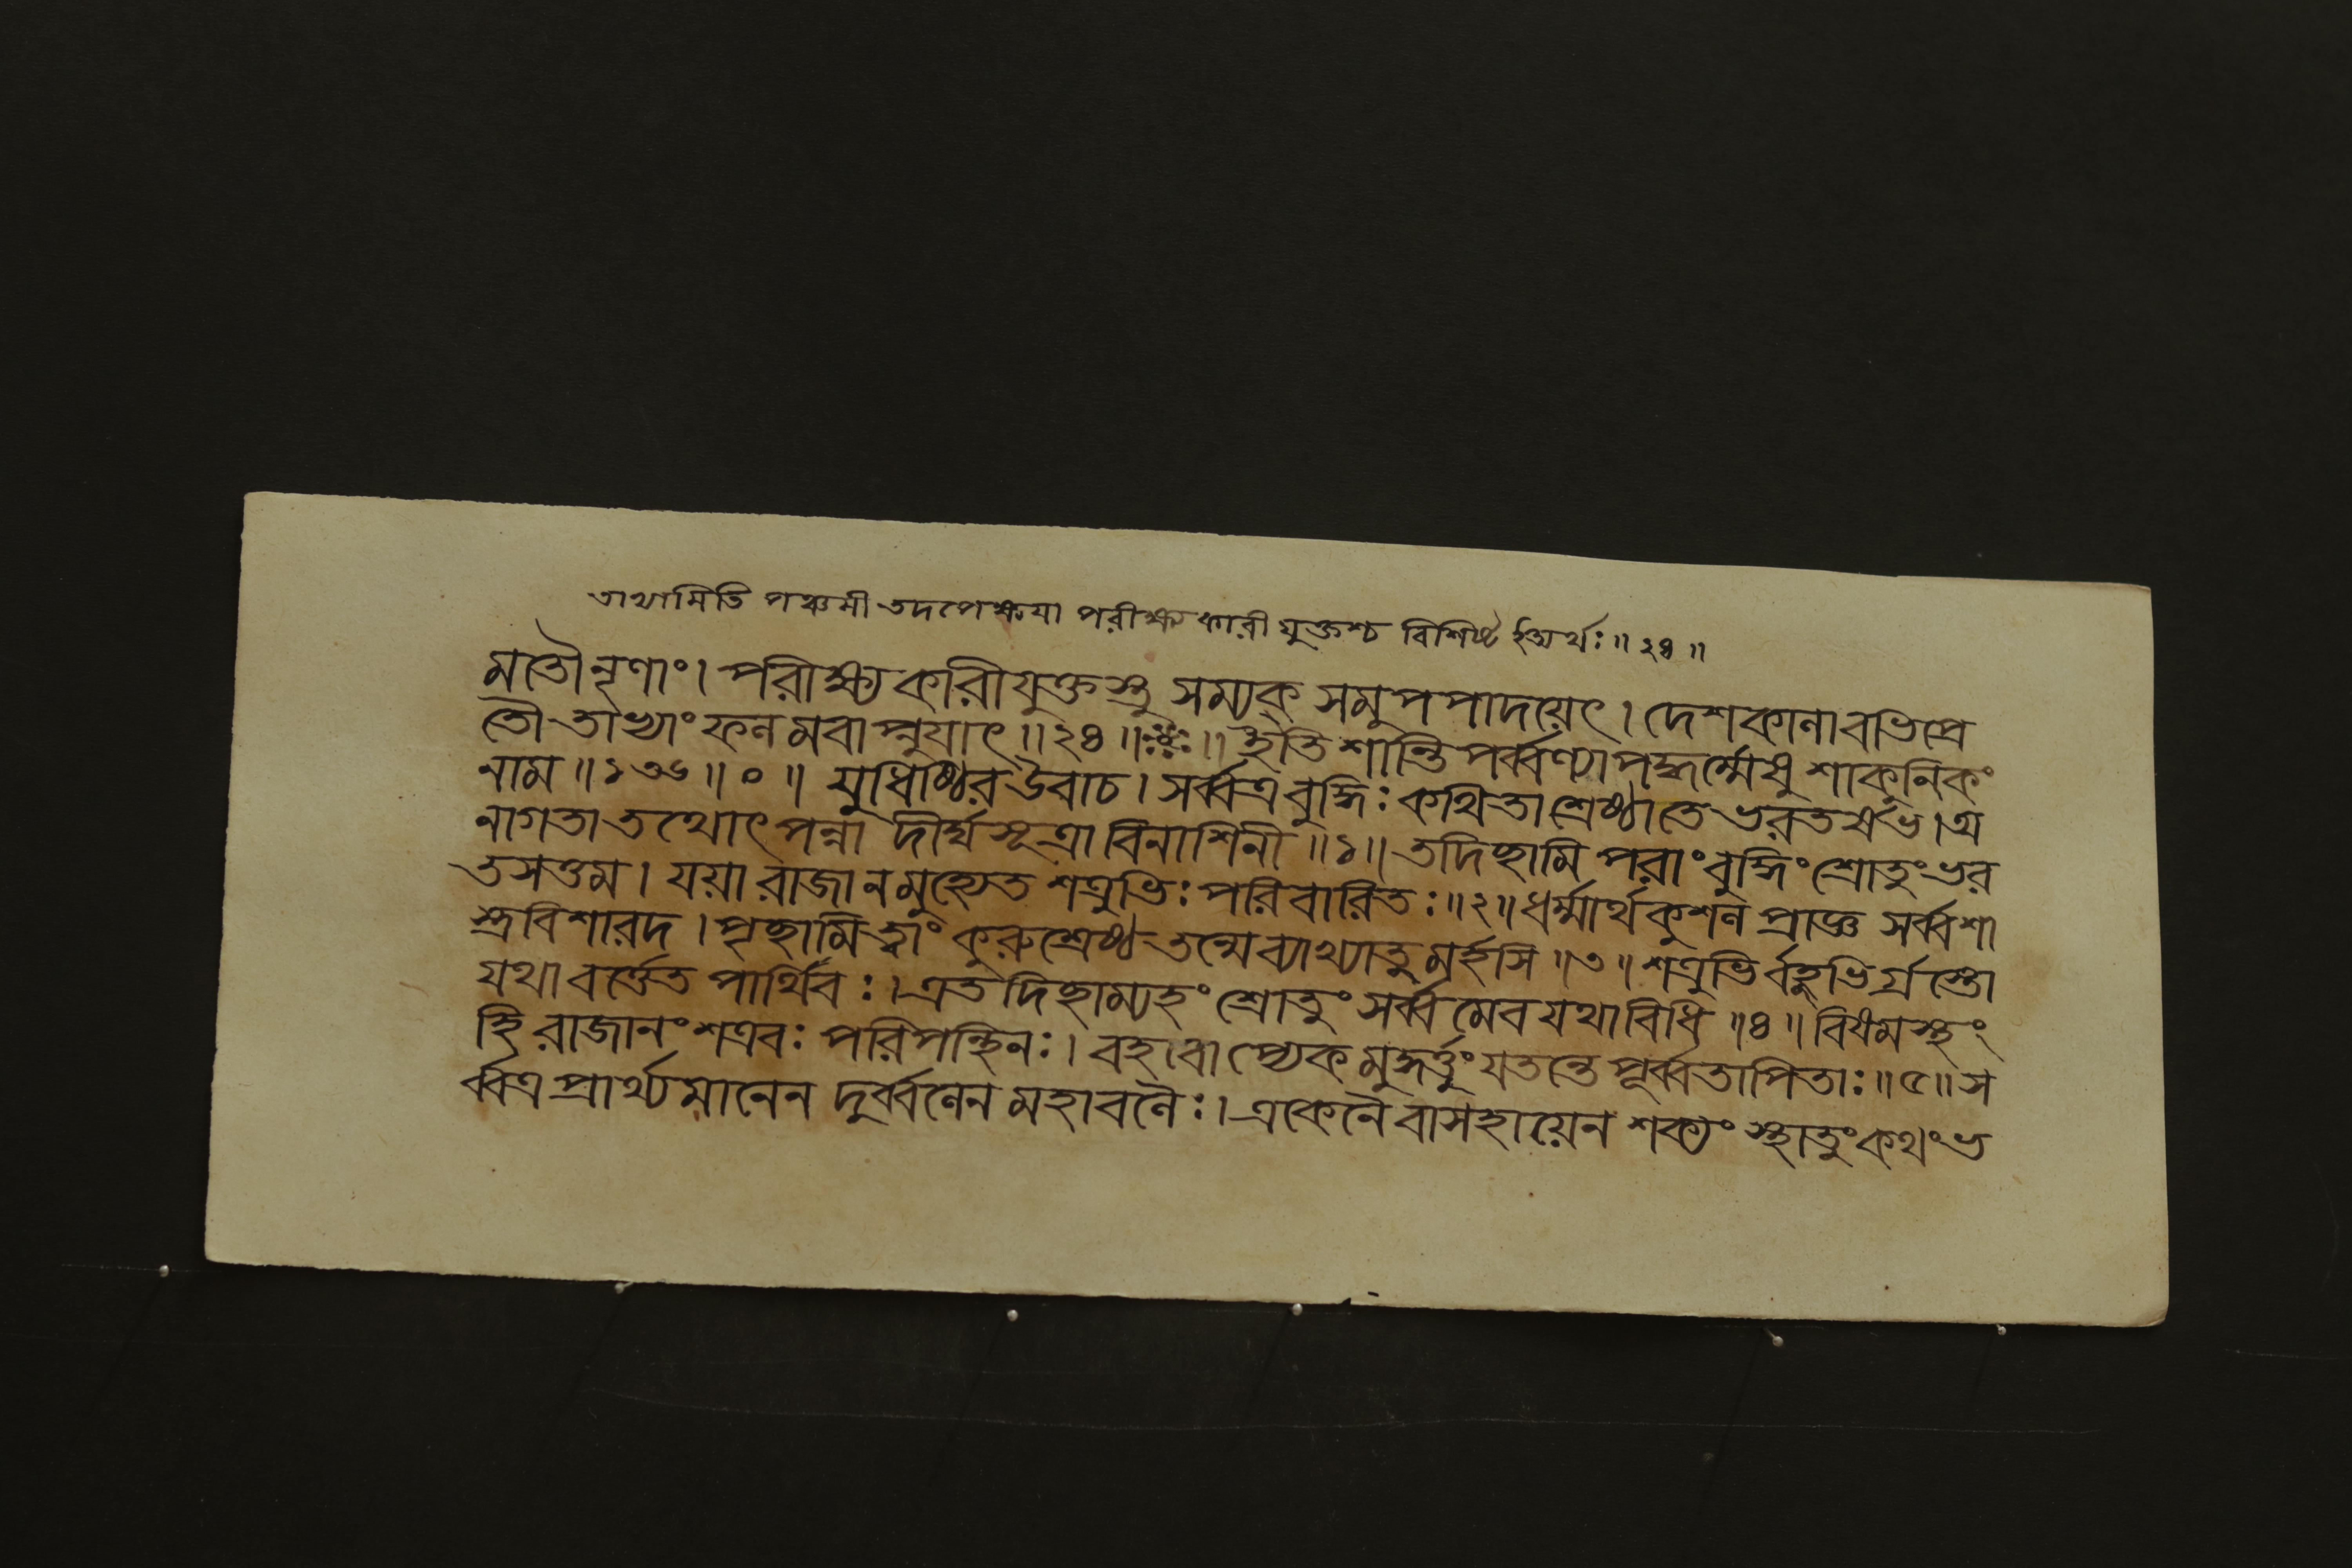 তাথ্যামিতি পঞ্চমী তদপেক্ষয়া পরীক্ষ্যকারী যুক্তশ্চ বিশিষ্ট ইঅর্থঃ ॥ ২৪ ॥
মতৌনৃণাং । পরীক্ষ্যকারীযুক্তস্তু সম্যক্ সমুপপাদয়েৎ । দেশকালাবভিপ্রে
তৌ তাভ্যাং ফলমবাপ্নুযাৎ ॥ ২৪ ॥ ॥ ইতি শান্তিপর্ব্বণ্যাপদ্ধর্ম্মেষু শাকুলিকং
নাম ॥ ১৩৬ ॥ ০ ॥ যুধিষ্ঠির উবাচ । সর্ব্বত্রবুদ্ধিঃ কথিতা শ্রেষ্ঠাতে ভরতর্ষভ । অ
নাগতা তথোৎপন্না দীর্ঘসূত্রা বিনাশিনী ॥ ১ ॥ তদিচ্ছামি পরাং বুদ্ধিং শ্রোতুং ভর
তসত্তম । যয়া রাজা ন মুহ্যেত শত্রুভিঃ পরিবারিতঃ ॥ ২ ॥ ধর্ম্মার্থকুশল প্রাজ্ঞ সর্ব্বশা
স্ত্রবিশারদ । পৃচ্ছামি ত্বাং কুরুশ্রেষ্ঠ তন্মে ব্যাখ্যাতুমর্হসি ॥ ৩ ॥ শত্রুভির্বহুভির্গ্রস্তো
যথা বর্ত্তেত পার্থিবঃ । এতদিচ্ছাম্যহং শ্রোতুং সর্ব্বমেব যথাবিধি ॥ ৪ ॥ বিষমস্থং
হি রাজানং শত্রবঃ পরিপন্থিনঃ । বহবোপ্যেকমুদ্ধর্ত্তুং যতন্তে পূর্ব্বতাপিতাঃ ॥ ৫ ॥ স
র্ব্বত্র প্রার্থ্যমানেন দুর্ব্বলেন মহাবলৈঃ । একেনৈবাসহায়েন শক্যং স্থাতুং কথং ভ